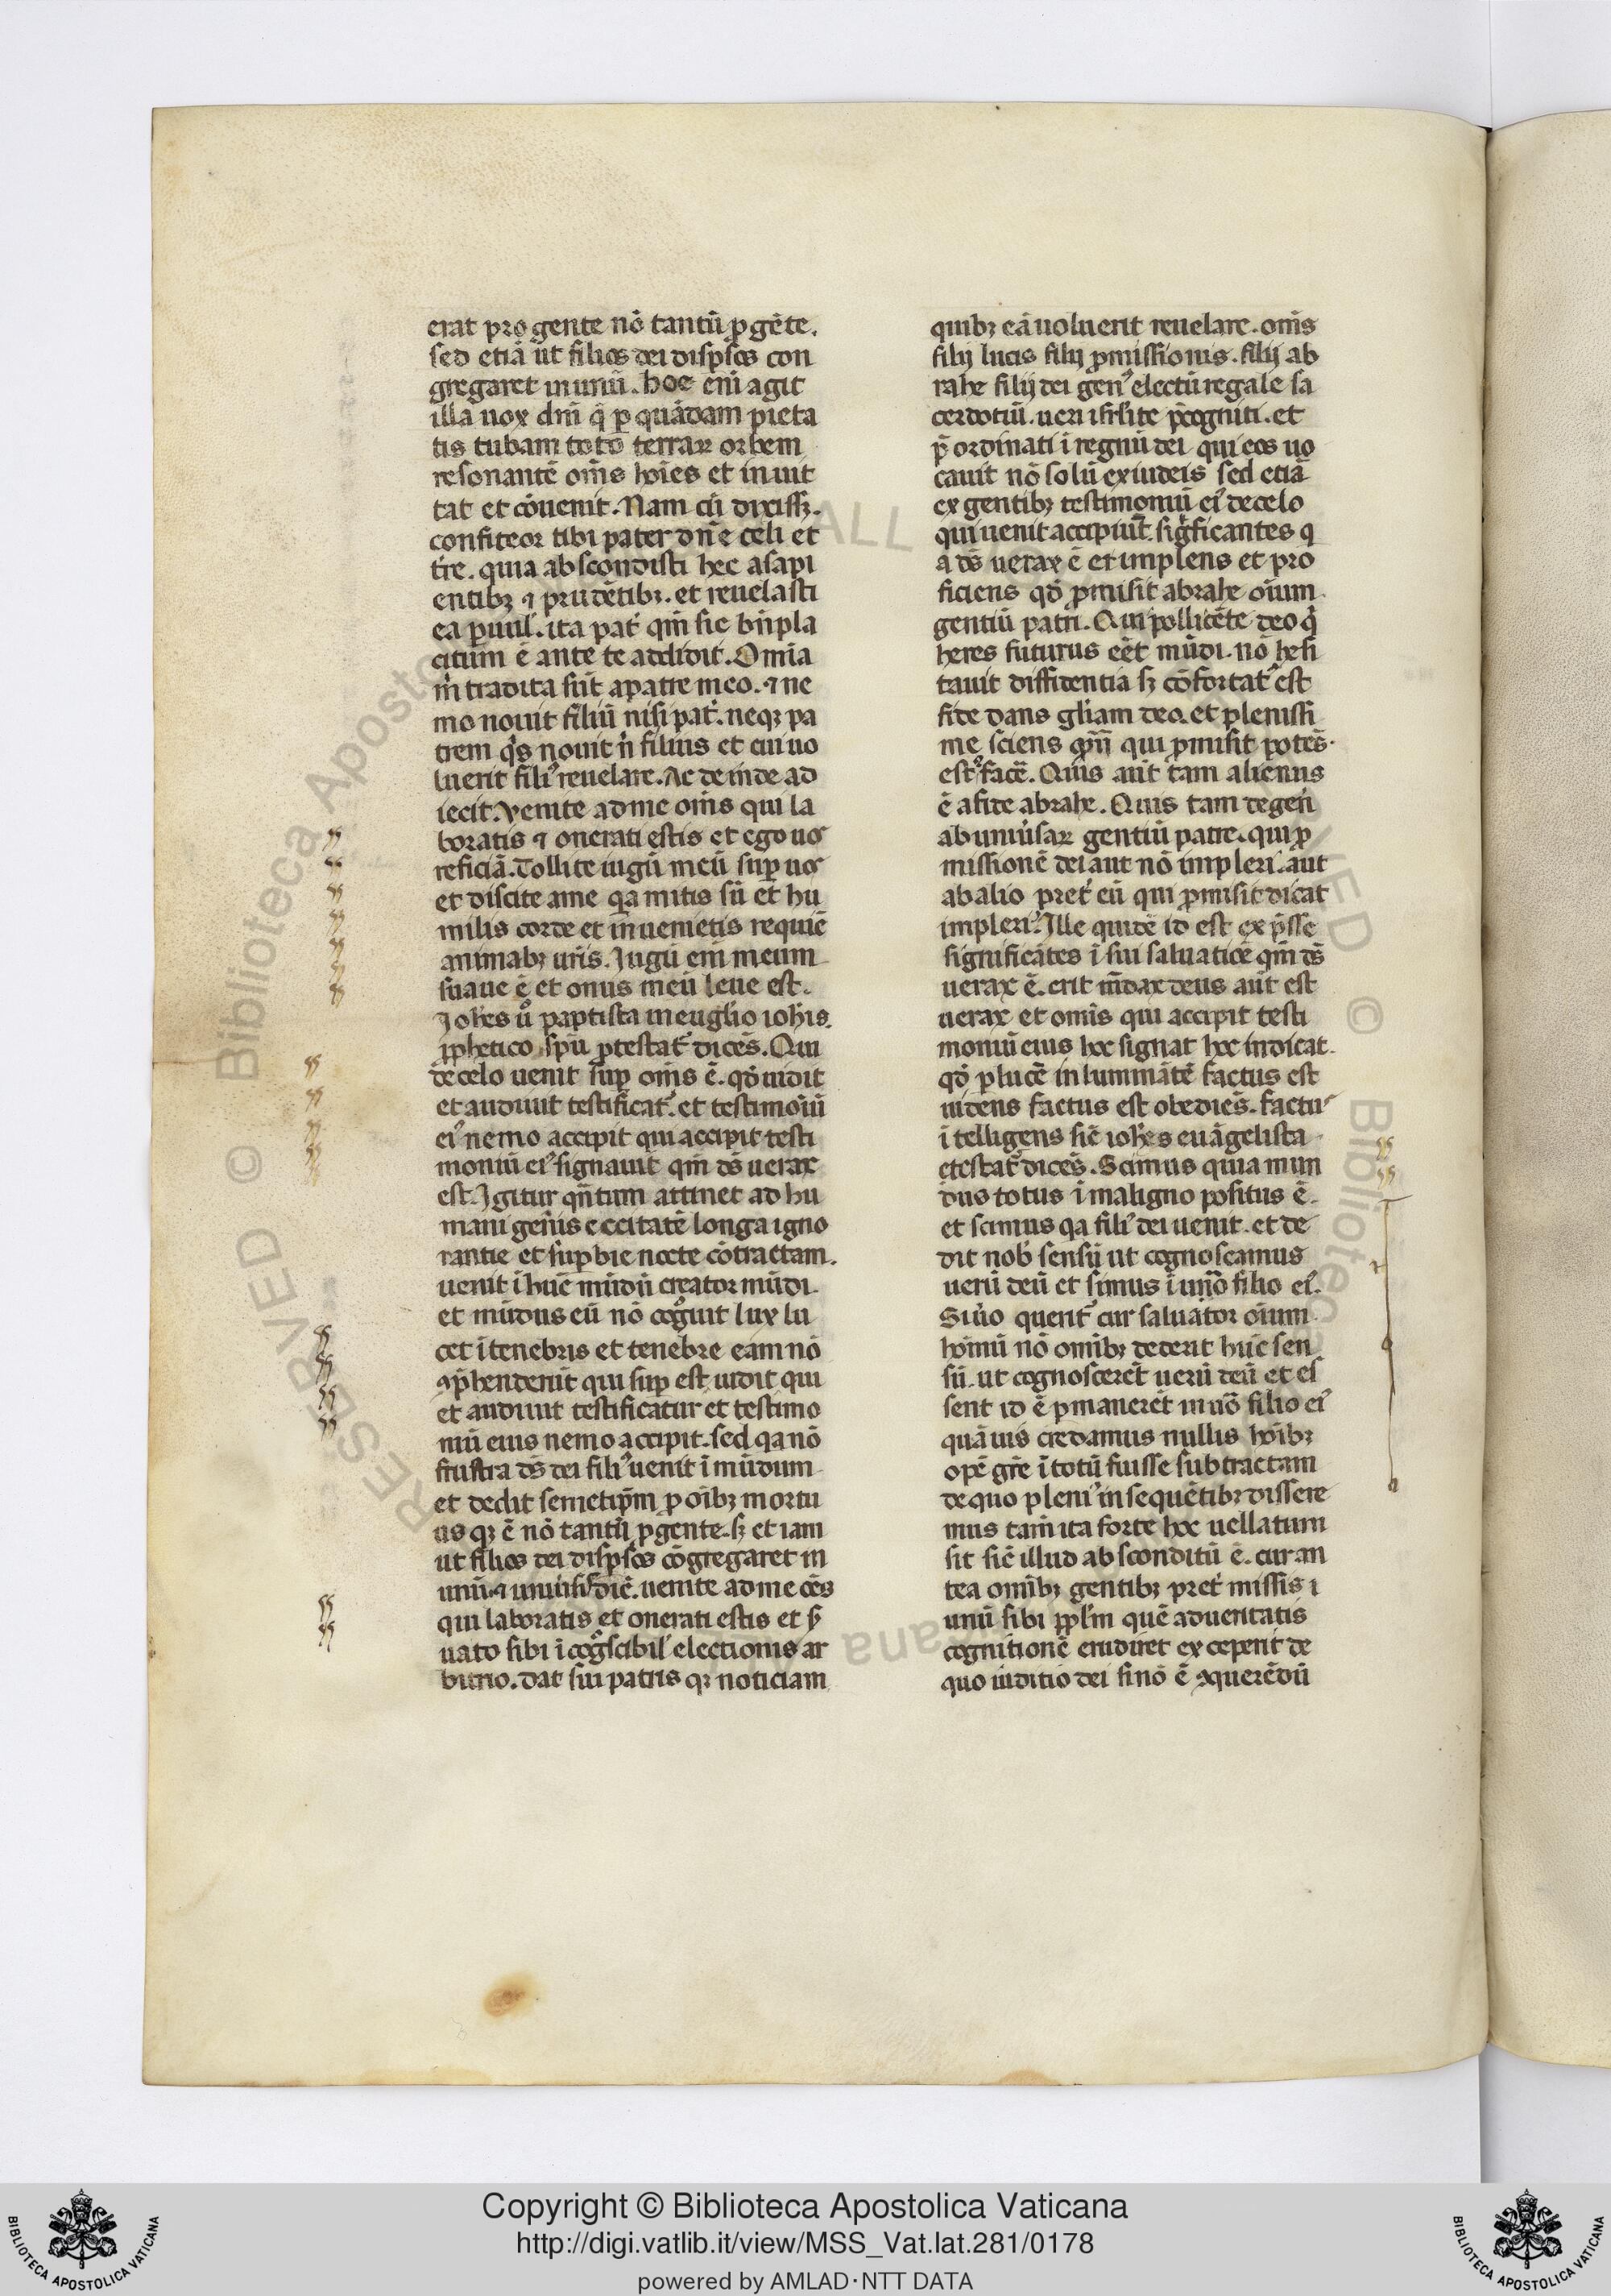 erat pro gente nō tantū ꝓ gēte.
sed etiā ut filios dei dispsos con
gregaret in unū. hoc eni agit
illa uox dnī q̄ ꝑ quādam pieta
tis tubam toto terraꝝ orbem
resonantē om̄s hoīes et inuit
tat et cōuenit. Nam cū dixissꝫ.
confiteor tibi pater dn̄e celi et
tr̄e. quia abscondisti hec asapi
entibꝫ ⁊ prudētibꝫ. et reuelasti
ea ꝑuul'. ita pat̉ qm̄ sic bn̄pla
citum ē ante te addidit. Omīa
m̄ tradita sūt apatre meo. ⁊ ne
mo nouit filiū nisi pat̉. neqꝫ pa
trem q̇s nouit n̄ filius et cui uo
luerit fili᾿ reuelare. Ac deinde ad
iecit. venite adme om̄s qui la
boratis ⁊ onerati estis et ego uos
reficiā. Tollite iugū meū suꝑ uos
et discite ame qa mitis sū et hu
milis corde et inuenietis requiē
animabꝫ ur̄is. Jugū eni meum
suaue ē et onus meū leue est.
Joh̄es ů paptista in euḡlio ioh̄is.
ꝓphetico sp̄u ꝓtestat᾿ dicēs. Qui
de celo uenit suꝑ om̄s ē. qd̄ uidit
et audiuit testificat᾿. et testimoīū
ei᾿ nemo accipit qui accipit testi
moniū ei᾿ signauit qm̄ ds̄ uerax
est. Igitur qn̄tum attinet ad hu
mani gen̄is cecitatē longa igno
rantie et suꝑbie nocte cōtractam.
uenit ī hūc mūdū creator mūdi
et mūdus eū nō cog̊uit lux lu
cet ī tenebris et tenebre eam nō
ꝯp̄hendenūt qui suꝑ est uidit qui
et audiuit testificatur et testimo
niū eius nemo accipit. sed qa nō
frustra ds̄ dei fili᾿ uenit ī mūdum
et dedit semetip̄m ꝓ oībꝫ mortu
us qꝫ ē nō tantū ꝓ gente. sꝫ et iam
ut filios dei dispsos cōgregaret in
unū. ⁊ uniūsi dic̄. uenite adme oēs
qui laboratis et onerati estis et s̉
uato sibi ī cog̊scibil' electionis ar
bitrio. dat sui patris qꝫ noticiam
quibꝫ eā uoluerit reuelare. om̄s
filij lucis filij ꝓmissionis. filij ab
rahe filij dei gen᾿ electū regale sa
cerdotiū. ueri isrl'ite p̄cogniti. et
p̄ordinati ī regnū dei qui eos uo
cauit nō solū exiudeis sed etiā
ex gentibꝫ testimoniū ei᾿ de celo
qui uenit accipiunt. signficantes q
a ds̄ uerax ē et implens et pro
ficiens qd̄ ꝓmisit abrahe oīum
gentiū patri. Qui pollicēte deo q̇
heres futurus eēt mūdi. nō hesi
tauit diffidentia sꝫ cōfortat᾿ est
fide dans gl̄iam deo. et plenissi
me sciens qm̄ qui ꝓmisit potēs
est facē. Quis aut̄ tam alienus
ē afide abrahe. Quis tam degen̉
ab uniūsaꝝ gentiū patre. qui ꝓ
missionē dei aut nō impleri. aut
abalio p̄ret̉ eū qui ꝓmisit dicat
impleri. Ille quidē id est exp̄sse
significātes ī sui saluatiōe qm̄ ds̄
uerax ē. erit m̄dax deus aūt est
uerax et omīs qui accipit testi
moniū eius hoc signat hoc indicat.
qd̄ ꝑ lucē inluminātē factus est
uidens factus est obediēs. factus
ītelligens sic̄ ioh̄es euāgelista
ꝓtestat᾿ dicēs. Scimus quia mun
dus totus ī maligno positus ē.
et scimus qa fili᾿ dei uenit. et de
dit nob̉ sensū ut cognoscamus
uerū deū et simus ī uno filio ei᾿.
Siu̇o querit᾿ cur saluator oīum
hoīnū nō omībꝫ dederit hūc sen
sū. ut cognoscerēt uerū deū et es
sent id ē ꝑmanerēt in uō filio ei᾿
quāuis credamus nullis hoībꝫ
opē gr̄e ī totū fuisse subtractam
dequo pleni᾿ insequētibꝫ dissere
mus tam̄ ita forte hoc uellatum
sit sic̄ illud absconditū ē. cur an
tea omībꝫ gentibꝫ p̄ret̉ missis ī
unū sibi ppl'm quē aduentatis
cognitionē erudiret exceperit de
quo iuditio dei sinō ē ꝯquerēdū
Copyright © Biblioteca Apostolica Vaticana
http://digi.vatlib.it/view/MSS_Vat.lat.281/0178
powered by AMLAD·NTT DATA